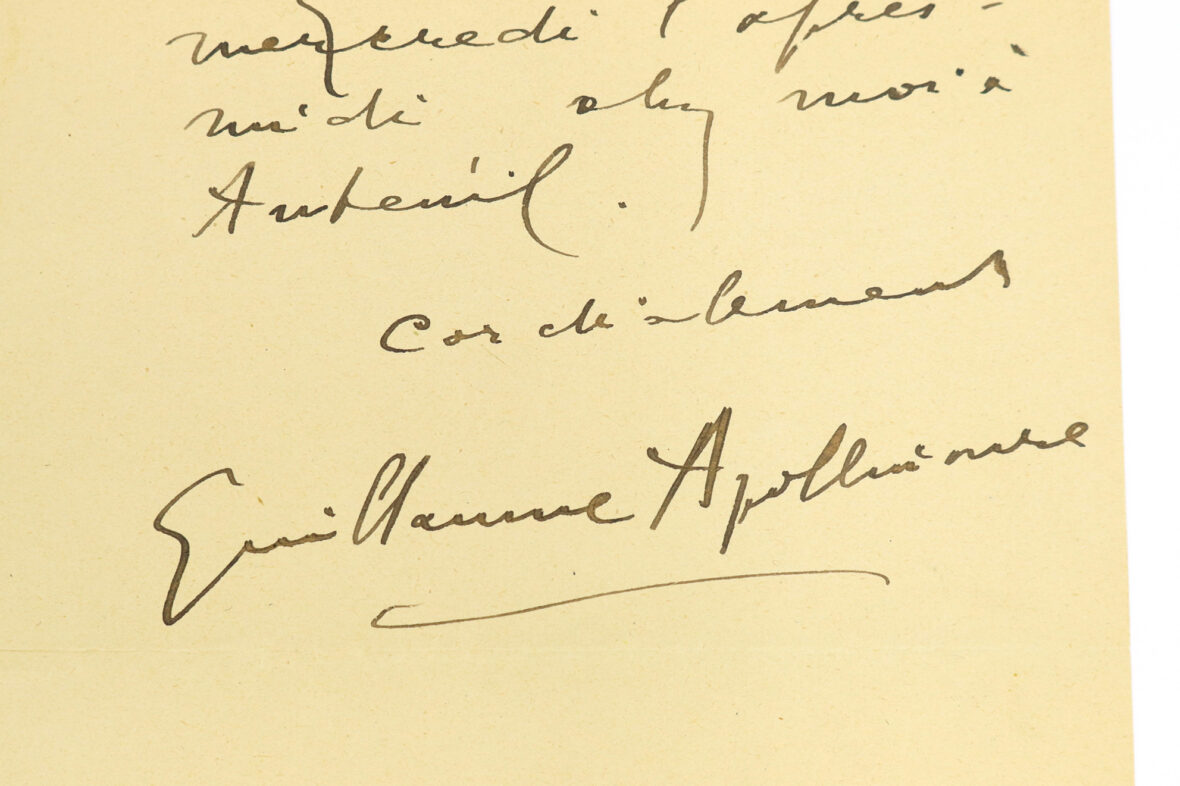 mercredi l'après-
midi chez moi à
Auteuil.
Cordialement
Guillaume Apollinaire